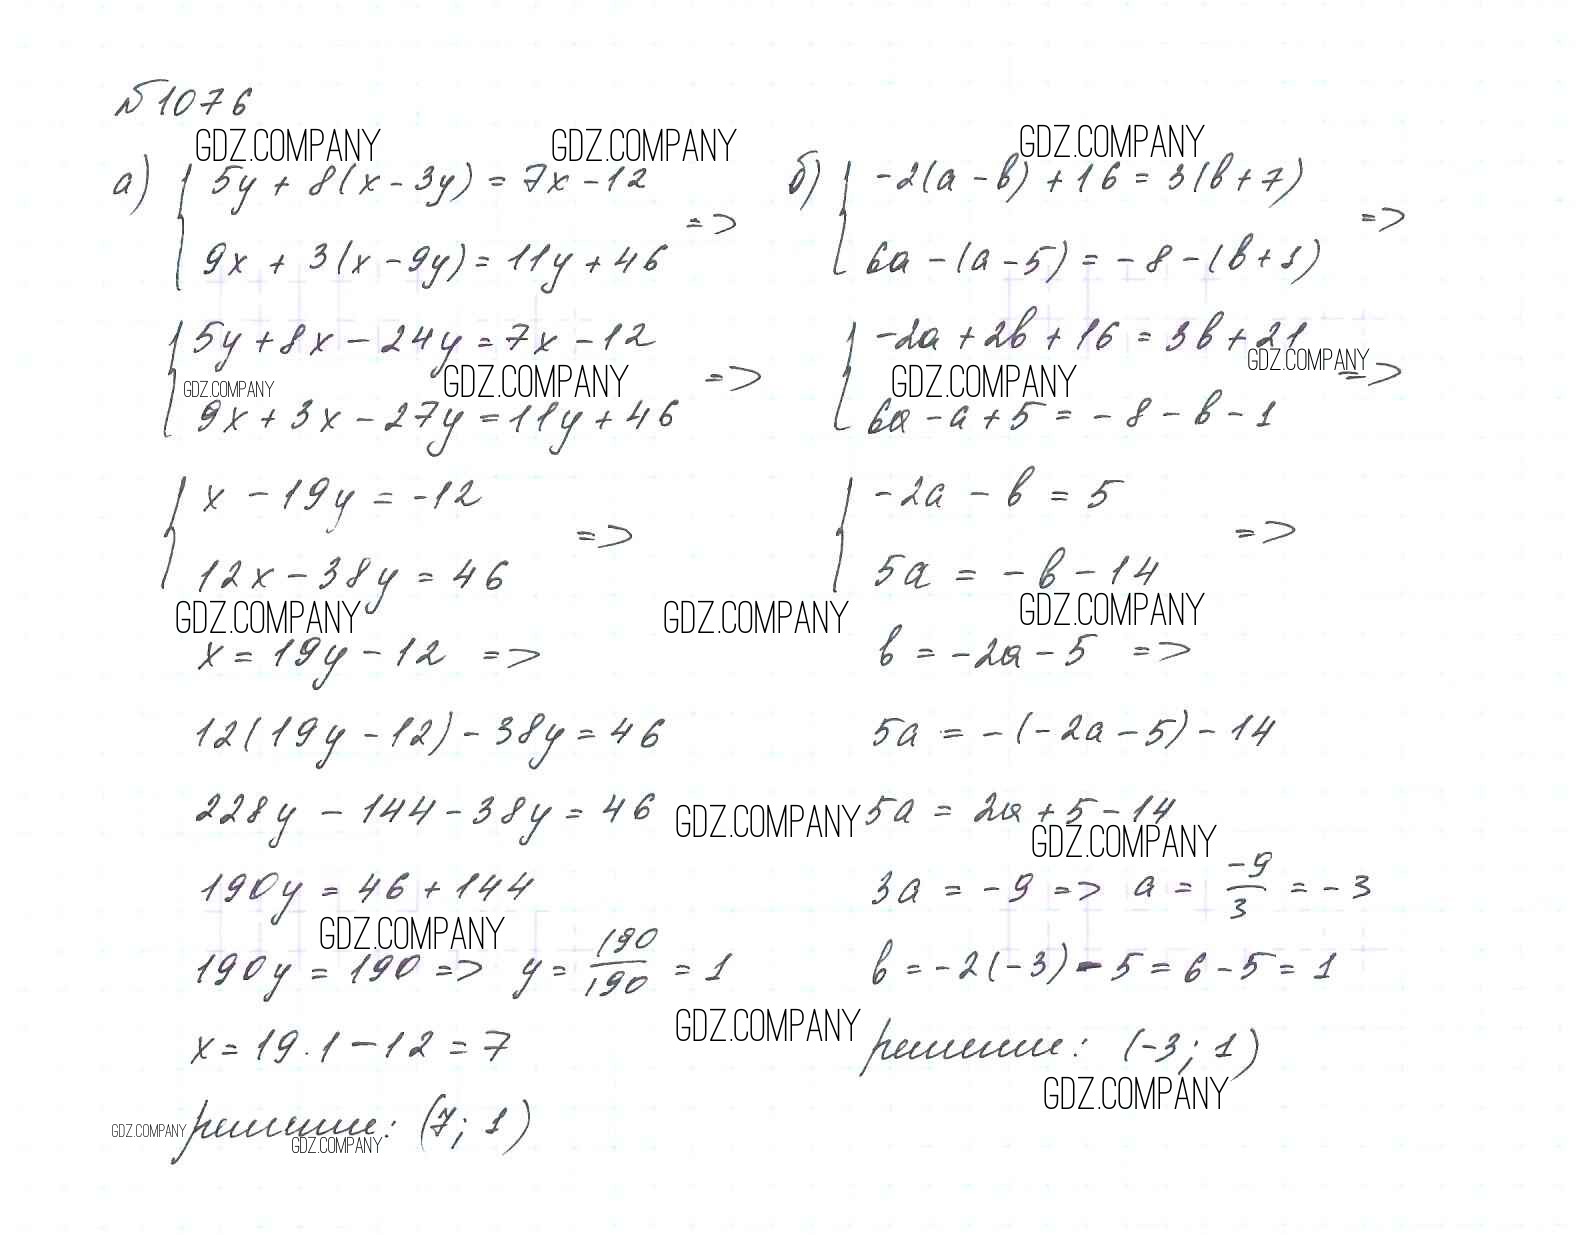 №1076
GDZ.COMPANY GDZ.COMPANY GDZ.COMPANY
а) 5y + 8(x - 3y) = 7x - 12
9x + 3(x - 9y) = 11y + 46 =>
5y + 8x - 24y = 7x - 12
GDZ.COMPANY GDZ.COMPANY =>
9x + 3x - 27y = 11y + 46
x - 19y = -12
12x - 38y = 46 =>
GDZ.COMPANY GDZ.COMPANY
x = 19y - 12 =>
12(19y - 12) - 38y = 46
228y - 144 - 38y = 46
GDZ.COMPANY
190y = 46 + 144
GDZ.COMPANY
190y = 190 => y = 190/190 = 1
GDZ.COMPANY
x = 19 · 1 - 12 = 7
GDZ.COMPANY решение: (7; 1)
GDZ.COMPANY
б) -2(a - b) + 16 = 3(b + 7)
6a - (a - 5) = -8 - (b + 1) =>
-2a + 2b + 16 = 3b + 21
GDZ.COMPANY GDZ.COMPANY =>
6a - a + 5 = -8 - b - 1
-2a - b = 5
5a = -b - 14 =>
GDZ.COMPANY
b = -2a - 5 =>
5a = -(-2a - 5) - 14
5a = 2a + 5 - 14
GDZ.COMPANY
3a = -9 => a = -9/3 = -3
b = -2(-3) - 5 = 6 - 5 = 1
решение: (-3; 1)
GDZ.COMPANY